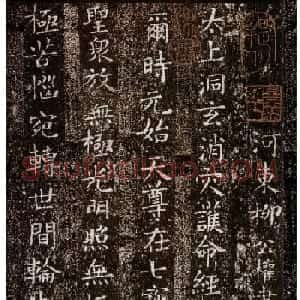 河東柳公權書
太上洞玄消灾護命經
爾時元始天尊在七寶
聖衆放無極光明照無極
極苦惱宛轉世間輪